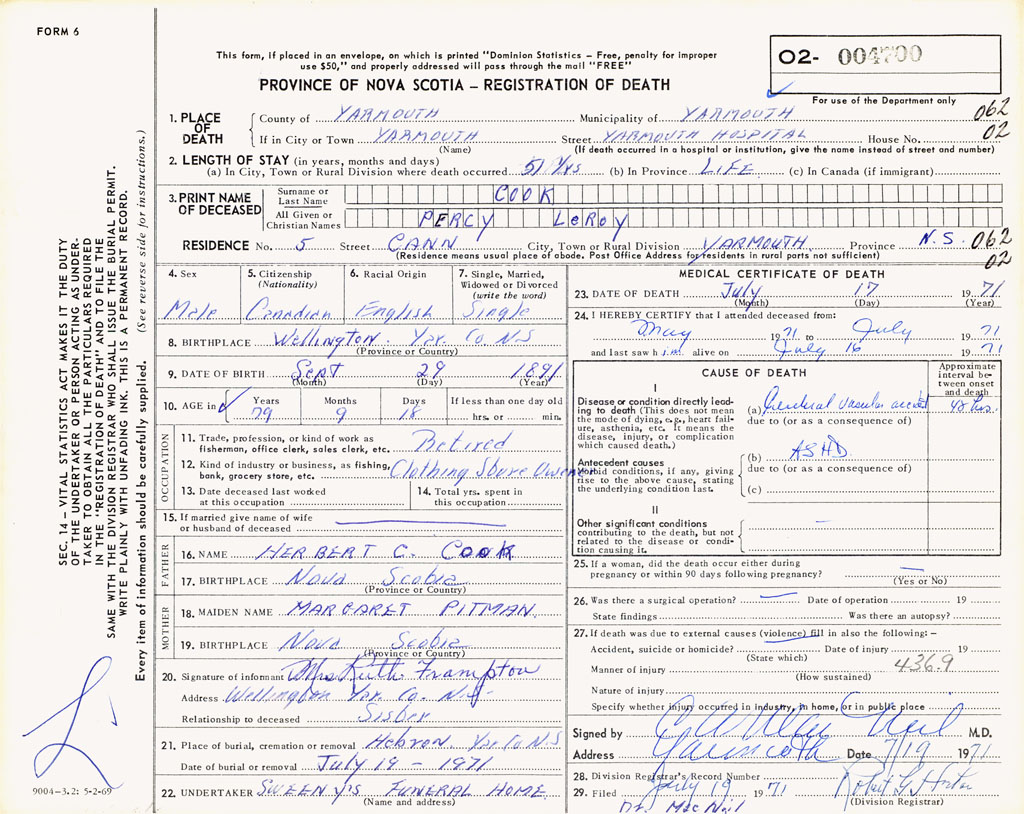 FORM 6
This form, if placed in an envelope, on which is printed "Dominion Statistics - Free, penalty for improper
use $50," and properly addressed will pass through the mail "FREE"
PROVINCE OF NOVA SCOTIA - REGISTRATION OF DEATH
O2- 004700
For use of the Department only
SEC. 14 - VITAL STATISTICS ACT MAKES IT THE DUTY
OF THE UNDERTAKER OR PERSON ACTING AS UNDER-
TAKER TO OBTAIN ALL THE PARTICULARS REQUIRED
IN THE "REGISTRATION OF DEATH" AND TO FILE THE
SAME WITH THE DIVISION REGISTRAR WHO SHALL ISSUE THE BURIAL PERMIT.
WRITE PLAINLY WITH UNFADING INK. THIS IS A PERMANENT RECORD.
Every item of information should be carefully supplied. (See reverse side for instructions.)
1. PLACE OF DEATH
County of YARMOUTH Municipality of YARMOUTH 062
If in City or Town YARMOUTH Street YARMOUTH HOSPITAL House No. 02
(Name) (If death occurred in a hospital or institution, give the name instead of street and number)
2. LENGTH OF STAY (in years, months and days)
(a) In City, Town or Rural Division where death occurred 51 Yrs (b) In Province LIFE (c) In Canada (if immigrant)
3. PRINT NAME OF DECEASED
Surname or Last Name COOK
All Given or Christian Names PERCY LeROY
RESIDENCE No. 5 Street CANN City, Town or Rural Division YARMOUTH Province N.S. 062
(Residence means usual place of abode. Post Office Address for residents in rural parts not sufficient) 02
4. Sex Male
5. Citizenship (Nationality) Canadian
6. Racial Origin English
7. Single, Married, Widowed or Divorced (write the word) Single
8. BIRTHPLACE Wellington Yar. Co. N.S
(Province or Country)
9. DATE OF BIRTH Sept 29 1891
(Month) (Day) (Year)
10. AGE in Years Months Days If less than one day old
79 9 18 hrs. or min.
OCCUPATION
11. Trade, profession, or kind of work as
fisherman, office clerk, sales clerk, etc. Retired
12. Kind of industry or business, as fishing,
bank, grocery store, etc. Clothing Store Owener
13. Date deceased last worked
at this occupation
14. Total yrs. spent in
this occupation
15. If married give name of wife
or husband of deceased
FATHER
16. NAME HERBERT C. COOK
17. BIRTHPLACE Nova Scotia
(Province or Country)
MOTHER
18. MAIDEN NAME MARGARET PITMAN
19. BIRTHPLACE Nova Scotia
(Province or Country)
20. Signature of informant Mrs Ruth Frampton
Address Wellington Yar. Co. N.S
Relationship to deceased Sister
21. Place of burial, cremation or removal Hebron Yar Co N.S
Date of burial or removal July 19 - 1971
22. UNDERTAKER SWEENY'S FUNERAL HOME
(Name and address)
9004-3.2: 5-2-69
MEDICAL CERTIFICATE OF DEATH
23. DATE OF DEATH July 17 1971
(Month) (Day) (Year)
24. I HEREBY CERTIFY that I attended deceased from:
May 1971 to July 1971
and last saw h im alive on July 16 1971
CAUSE OF DEATH
Approximate interval between onset and death
I
Disease or condition directly lead-
ing to death (This does not mean
the mode of dying, e.g., heart fail-
ure, asthenia, etc. It means the
disease, injury, or complication
which caused death.)
(a) Cerebral vascular accident 48 hrs.
due to (or as a consequence of)
Antecedent causes
Morbid conditions, if any, giving
rise to the above cause, stating
the underlying condition last.
(b) ASHD
due to (or as a consequence of)
(c)
II
Other significant conditions
contributing to the death, but not
related to the disease or condi-
tion causing it.
25. If a woman, did the death occur either during
pregnancy or within 90 days following pregnancy?
(Yes or No)
26. Was there a surgical operation? Date of operation 19
State findings Was there an autopsy?
27. If death was due to external causes (violence) fill in also the following: -
Accident, suicide or homicide? Date of injury 19
(State which)
Manner of injury 436.9
(How sustained)
Nature of injury
Specify whether injury occurred in industry, in home, or in public place
Signed by Neil M.D.
Address Yarmouth Date 7/19 1971
28. Division Registrar's Record Number
29. Filed July 19 1971 Robert G
Dr. MacNeil (Division Registrar)